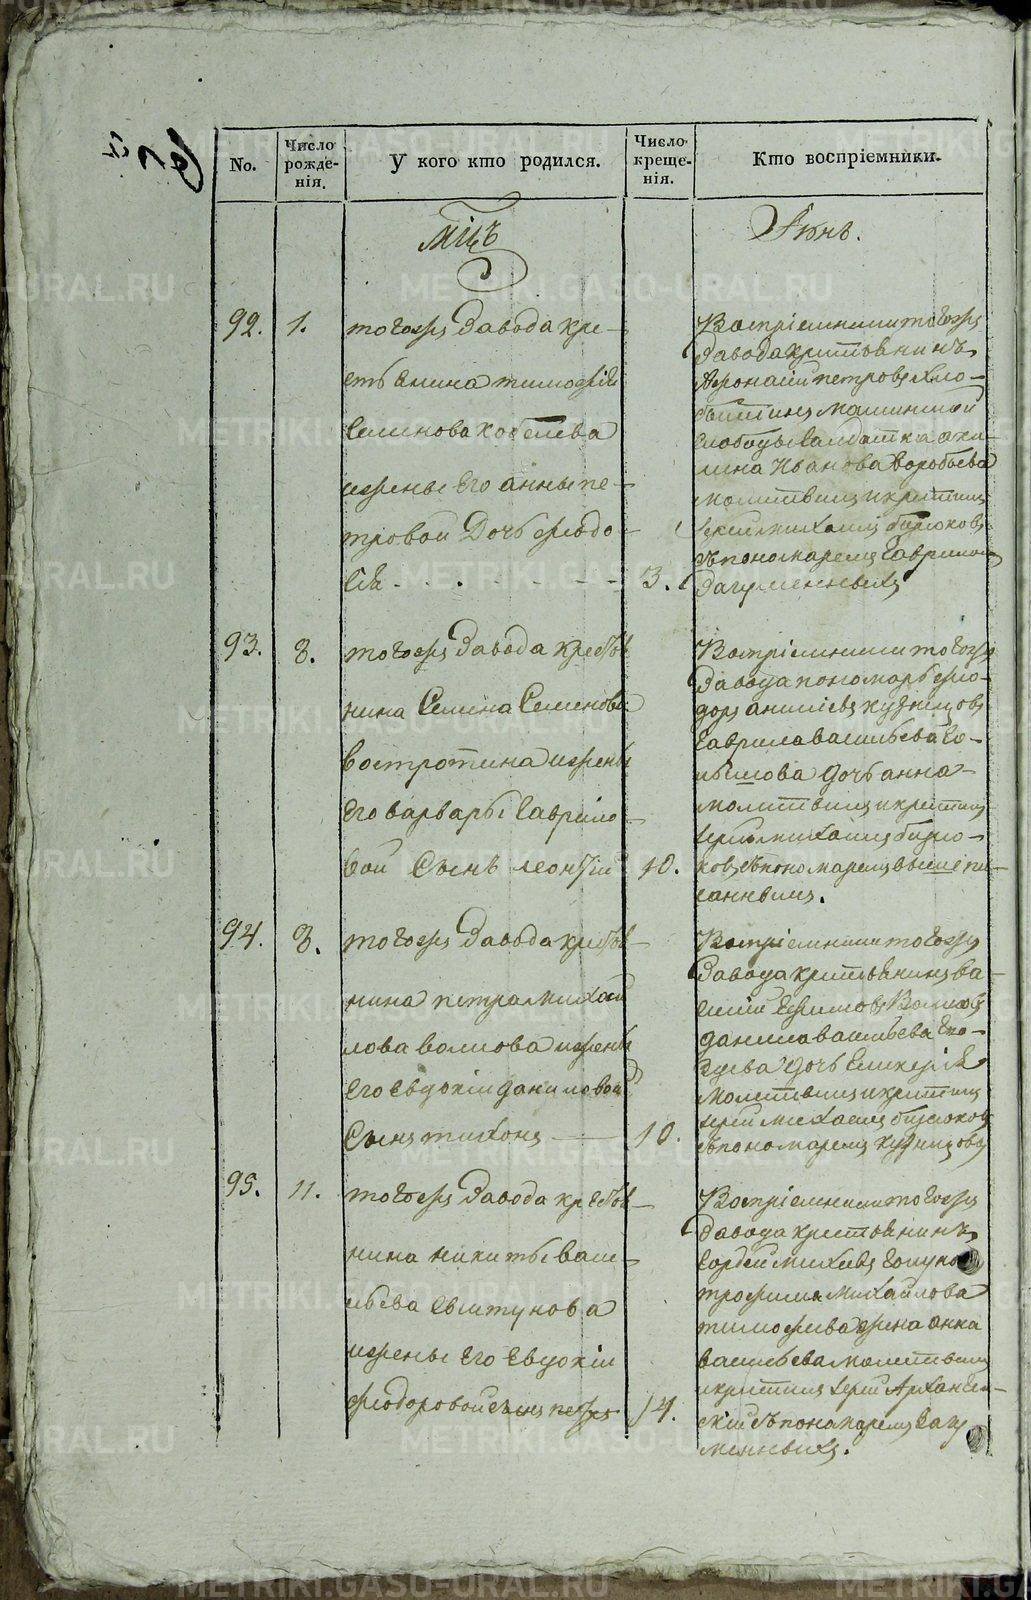 No.
Число рожденія.
У кого кто родился.
Число крещенія.
Кто воспріемники.
Мцъ
Іюнь.
92.
1.
тогожъ Завода кре-
стьянина тимофѣя
Семенова кобелева
ижены его анны пе-
тровой Дочь фіодо-
сія
3.
Воспріемники тогожъ
Завода крестьянинъ
Афонасій петровъ
слободы Салдатка аку-
лина Иванова воробьева
молитвилъ икрестилъ
Іерей михаилъ бирюковъ
съпономаремъ Гавриломъ
Загуменныхъ
93.
8.
тогожъ Завода крестья
нина Семена Семенова
востротина ижены
его варвары Гаврило-
вой Сынъ леонтій
10.
Воспріемники тогожъ
Завода пономарь фіо-
доръ кузнецовъ
Гаврила васильева
дочь анна
молитвилъ икрестилъ
Іерей михаилъ бирю-
ковъ съпономаремъ вышепи-
саннымъ.
94.
8.
тогожъ Завода крестья-
нина петра михай
лова волкова ижены
его Евдокіи даниловой
Сынъ тихонъ
10.
Воспріемники тогожъ
Завода крестьянинъ ва-
силій Ефимовъ Волковъ
данила васильева
дочь Гликерія
молитвилъ икрестилъ
Іерей михаилъ бирюковъ
съпономаремъ кузнецовъ
95.
11.
тогожъ Завода крестья-
нина никиты васи-
льева
ижены его Евдокіи
фіодоровой сынъ петръ
14.
Воспріемники тогожъ
Завода крестьянинъ
трофима михайлова
тимофеева жена анна
васильева молитвилъ
икрестилъ Іерей Арханге-
скій съпономаремъ Загу
менныхъ.
METRIKI.GASO-URAL.RU